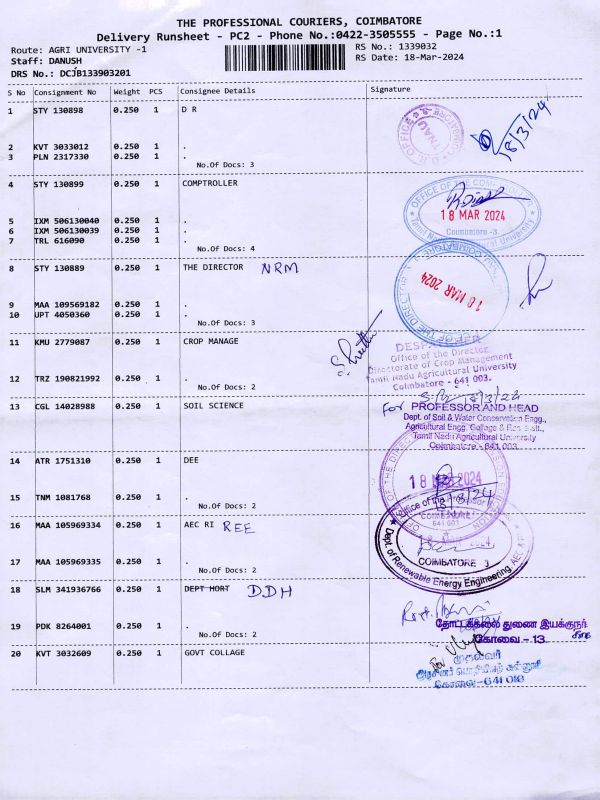 THE PROFESSIONAL COURIERS, COIMBATORE
Delivery Runsheet - PC2 - Phone No.:0422-3505555 - Page No.:1
Route: AGRI UNIVERSITY -1
RS No.: 1339032
Staff: DANUSH
RS Date: 18-Mar-2024
DRS No.: DCJB133903201
S No Consignment No Weight PCS Consignee Details Signature
1 STY 130898 0.250 1 D R
D.R. OFFICE TNAU COIMBATORE-3
18/3/24
2 KVT 3033012 0.250 1 .
3 PLN 2317330 0.250 1 .
No.Of Docs: 3
4 STY 130899 0.250 1 COMPTROLLER
OFFICE OF THE COMPTROLLER
18 MAR 2024
Coimbatore -3.
Tamil Nadu Agricultural University
5 IXM 506130040 0.250 1 .
6 IXM 506130039 0.250 1 .
7 TRL 616090 0.250 1 .
No.Of Docs: 4
8 STY 130889 0.250 1 THE DIRECTOR NRM
18 MAR 2024
OFFICE OF THE DIRECTOR
9 MAA 109569182 0.250 1 .
10 UPT 4050360 0.250 1 .
No.Of Docs: 3
11 KMU 2779087 0.250 1 CROP MANAGE
DESPATCHER
Office of the Director
Directorate of Crop Management
Tamil Nadu Agricultural University
Coimbatore - 641 003.
12 TRZ 190821992 0.250 1 .
No.Of Docs: 2
18/3/24
13 CGL 14028988 0.250 1 SOIL SCIENCE
For PROFESSOR AND HEAD
Dept. of Soil & Water Conservation Engg.,
Agricultural Engg. College & Res. Instt.,
Tamil Nadu Agricultural University
Coimbatore - 641 003.
14 ATR 1751310 0.250 1 DEE
18 MAR 2024
18/3/24
15 TNM 1081768 0.250 1 .
No.Of Docs: 2
16 MAA 105969334 0.250 1 AEC RI REE
COIMBATORE 3
Dept. of Renewable Energy Engineering
17 MAA 105969335 0.250 1 .
No.Of Docs: 2
18 SLM 341936766 0.250 1 DEPT HORT DDH
19 PDK 8264001 0.250 1 .
No.Of Docs: 2
தோட்டக்கலை துணை இயக்குநர்
கோவை - 13
20 KVT 3032609 0.250 1 GOVT COLLAGE
For
முதல்வர்
அரசினர் பொறியியற் கல்லூரி
கோவை - 641 013